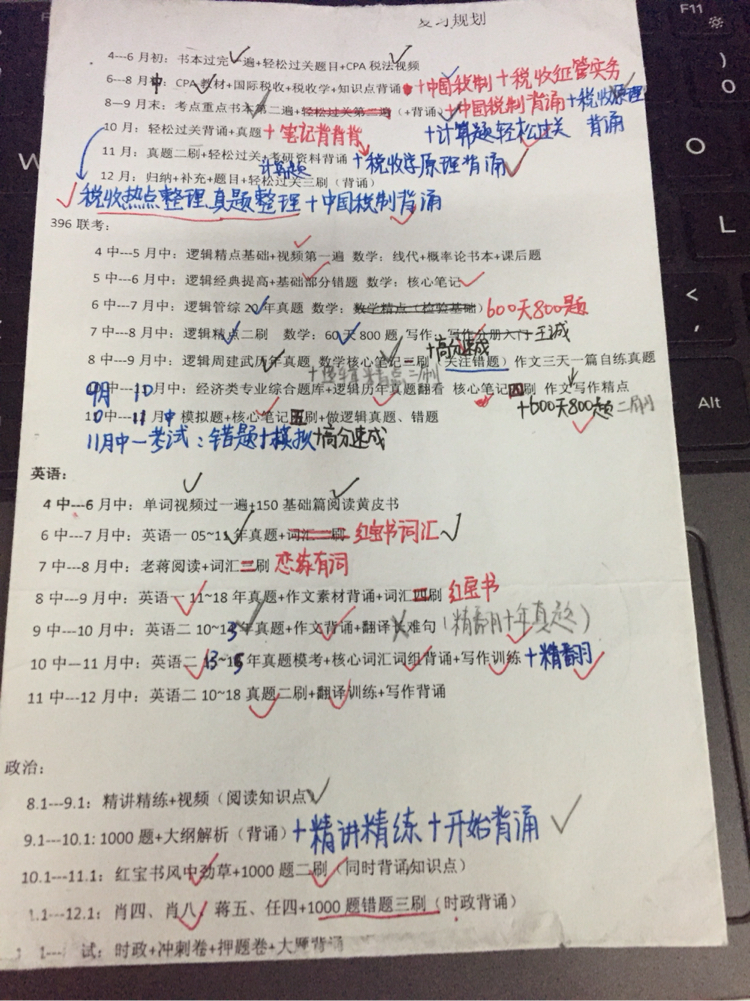 复习规划
4---6 月初：书本过完一遍+轻松过关题目+CPA 税法视频
6---8 月中：CPA 教材+国际税收+税收学+知识点背诵+中国税制+税收征管实务
8---9 月末：考点重点书本第二遍+轻松过关第二遍（+背诵）+中国税制背诵+税收原理背诵
10 月：轻松过关背诵+真题+笔记背背背 +计算题轻松过关
11 月：真题二刷+轻松过关+考研资料背诵+税收学原理背诵
计算题
12 月：归纳+补充+题目+轻松过关三刷（背诵）
税收热点整理、真题整理+中国税制背诵
396 联考：
4 中---5 月中：逻辑精点基础+视频第一遍 数学：线代+概率论书本+课后题
5 中---6 月中：逻辑经典提高+基础部分错题 数学：核心笔记
6 中---7 月中：逻辑管综 20 年真题 数学：数学精点（检验基础）600天800题
7 中---8 月中：逻辑精点二刷 数学：60 天 800 题，写作：写作分册入门 王诚
+高分速成
8 中---9 月中：逻辑周建武历年真题 数学核心笔记三刷（关注错题）作文三天一篇自练真题
+逻辑精点三刷
9月中---10月中：经济类专业综合题库+逻辑历年真题翻看 核心笔记四刷 作文写作精点
+600天800题二刷
10中---11月中 模拟题+核心笔记五刷+做逻辑真题、错题
11月中—考试：错题+模拟+高分速成
英语：
4 中---6 月中：单词视频过一遍+150 基础篇阅读黄皮书
6 中---7 月中：英语一 05~11 年真题+词汇二刷 红宝书词汇
7 中---8 月中：老蒋阅读+词汇三刷 恋练有词
8 中---9 月中：英语一 11~18 年真题+作文素材背诵+词汇四刷 红宝书
9 中---10 月中：英语二 10~13年真题+作文背诵+翻译长难句（精翻十年真题）
10 中---11 月中：英语二 13~15年真题模考+核心词汇词组背诵+写作训练+精翻
11 中---12 月中：英语二 10~18 真题二刷+翻译训练+写作背诵
政治：
8.1---9.1：精讲精练+视频（阅读知识点）
9.1---10.1: 1000 题+大纲解析（背诵）+精讲精练+开始背诵
10.1---11.1：红宝书风中劲草+1000 题二刷（同时背诵知识点）
1.1---12.1：肖四、肖八、蒋五、任四+1000 题错题三刷（时政背诵）
1---试：时政+冲刺卷+押题卷+大题背诵